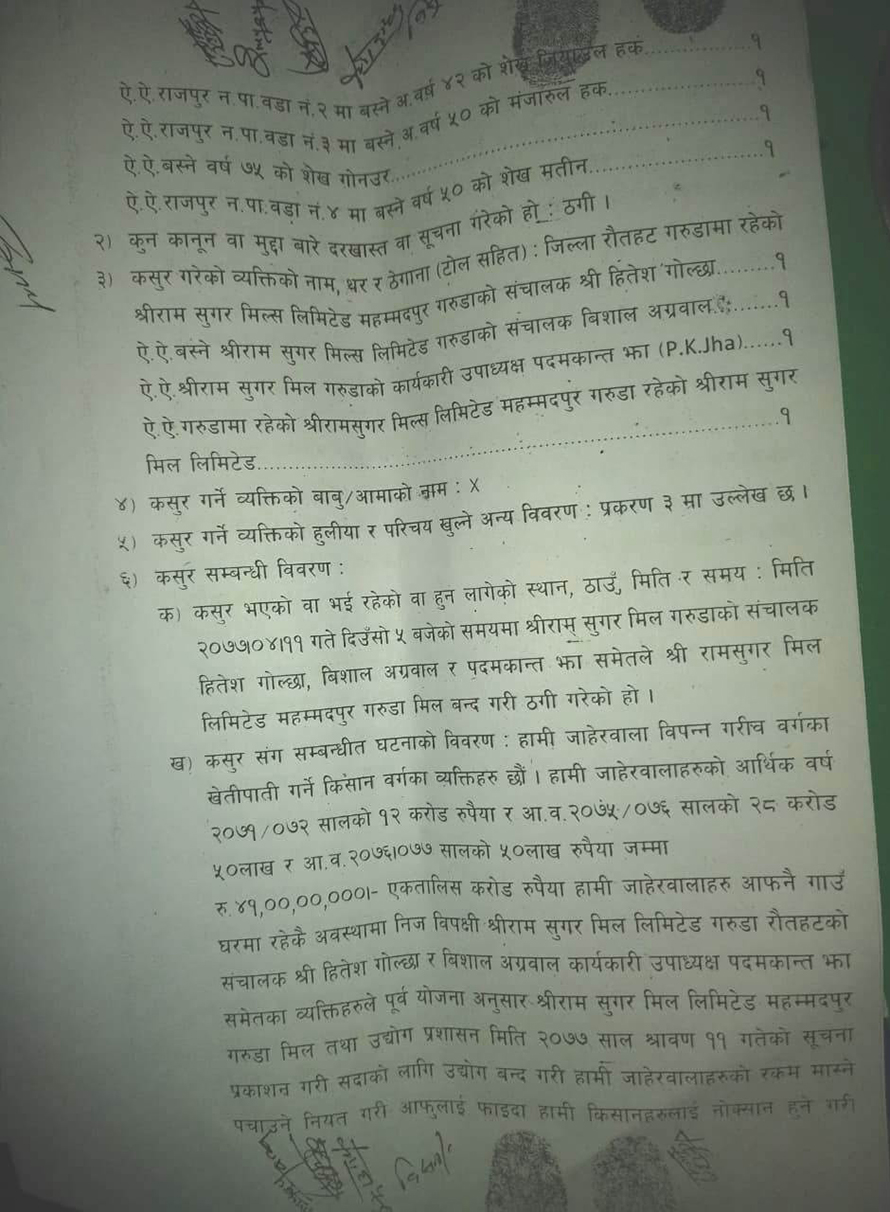 ऐ.ऐ.राजपुर न.पा.वडा नं.२ मा बस्ने अ.वर्ष ४२ को शेख हक..............१
ऐ.ऐ.राजपुर न.पा.वडा नं.३ मा बस्ने अ.वर्ष ५० को मंजारुल हक..................१
ऐ.ऐ.बस्ने वर्ष ७५ को शेख गोनउर..............................................................१
ऐ.ऐ.राजपुर न.पा.वडा नं.४ मा बस्ने वर्ष ५० को शेख मतीन......................१
२) कुन कानून वा मुद्दा बारे दरखास्त वा सूचना गरेको हो : ठगी ।
३) कसुर गरेको व्यक्तिको नाम, थर र ठेगाना (टोल सहित) : जिल्ला रौतहट गरुडामा रहेको
श्रीराम सुगर मिल्स लिमिटेड महम्मदपुर गरुडाको संचालक श्री हितेश गोल्छा.........१
ऐ.ऐ.बस्ने श्रीराम सुगर मिल्स लिमिटेड गरुडाको संचालक विशाल अग्रवाल.........१
ऐ.ऐ.श्रीराम सुगर मिल गरुडाको कार्यकारी उपाध्यक्ष पदमकान्त झा (P.K.Jha)......१
ऐ.ऐ.गरुडामा रहेको श्रीरामसुगर मिल्स लिमिटेड महम्मदपुर गरुडा रहेको श्रीराम सुगर
मिल लिमिटेड..............................................................................१
४) कसुर गर्ने व्यक्तिको बाबु/आमाको नाम : X
५) कसुर गर्ने व्यक्तिको हुलीया र परिचय खुल्ने अन्य विवरण : प्रकरण ३ मा उल्लेख छ ।
६) कसुर सम्बन्धी विवरण :
क) कसुर भएको वा भई रहेको वा हुन लागेको स्थान, ठाउँ, मिति र समय : मिति
२०७७।०४।११ गते दिउँसो ५ बजेको समयमा श्रीराम सुगर मिल गरुडाको संचालक
हितेश गोल्छा, बिशाल अग्रवाल र पदमकान्त झा समेतले श्री रामसुगर मिल
लिमिटेड महम्मदपुर गरुडा मिल बन्द गरी ठगी गरेको हो ।
ख) कसुर संग सम्बन्धीत घटनाको विवरण : हामी जाहेरवाला विपन्न गरीच वर्गका
खेतीपाती गर्ने किसान वर्गका व्यक्तिहरु छौं । हामी जाहेरवालाहरुको आर्थिक वर्ष
२०७१/०७२ सालको १२ करोड रुपैया र आ.व.२०७५/०७६ सालको २८ करोड
५०लाख र आ.व.२०७६।०७७ सालको ५०लाख रुपैया जम्मा
रु.४१,००,००,०००।- एकतालिस करोड रुपैया हामी जाहेरवालाहरु आफनै गाउँ
घरमा रहेकै अवस्थामा निज विपक्षी श्रीराम सुगर मिल लिमिटेड गरुडा रौतहटको
संचालक श्री हितेश गोल्छा र बिशाल अग्रवाल कार्यकारी उपाध्यक्ष पदमकान्त झा
समेतका व्यक्तिहरुले पूर्व योजना अनुसार श्रीराम सुगर मिल लिमिटेड महम्मदपुर
गरुडा मिल तथा उद्योग प्रशासन मिति २०७७ साल श्रावण ११ गतेको सूचना
प्रकाशन गरी सदाको लागि उद्योग बन्द गरी हामी जाहेरवालाहरुको रकम मास्ने
पचाउने नियत गरी आफुलाई फाइदा हामी किसानहरुलाई नोक्सान हुने गरी